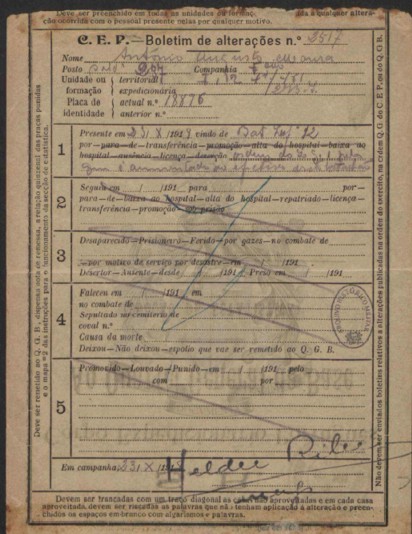 Deve ser preenchido em todas as unidades da formaç
sta a qualquer altera-
ção ocorrida com o pessoal presente nelas por qualquer motivo.
C. E. P.—Boletim de alterações n.º 2517
Nome António Augusto Moura
Posto Companhia
Unidade ou { territorial
formação { expedicionaria
Placa de { actual n.º 18876
identidade { anterior n.º
1
Presente em 23/X/1917 vindo de Bat Inf 12
por—para—de—transferência—promoção—alta do hospital—baixa ao
hospital—ausência—licença—deserção
2
Seguiu em / /191 para por—
para—de—baixa ao hospital—alta do hospital—repatriado—licença—
transferência—promoção—na prisão
3
Desaparecido—Prisioneiro—Ferido—por gazes—no combate de
—por motivo de serviço por desastre—em / /191
Desertor—Ausente—desde / /191 Preso em / /191
4
Faleceu em / /191 em
no combate de
Sepultado no cemiterio de
coval n.º
Causa da morte
Deixou—Não deixou—espolio que vae ser remetido ao Q. G. B.
5
Promovido—Louvado—Punido—em / /191 pelo
com por
Em campanha, 23/X/191
Helder Ribeiro
Devem ser trancadas com um traço diagonal as casas não aproveitadas e em cada casa
aproveitada devem ser riscadas as palavras que não tenham aplicação á alteração e preen-
chidos os espaços em branco com algarismos e palavras.
Deve ser remetido ao Q. G. B., dispensa nota de remessa, a relação quinzenal das praças punidas
e o mapa n.º 2 das instruções para o funcionamento da secção de estatistica.
Não devem ser enviados boletins relativos a alterações publicadas na ordem do exercito, na ordem Q. G. do C. E. P. ou do Q. G. B.